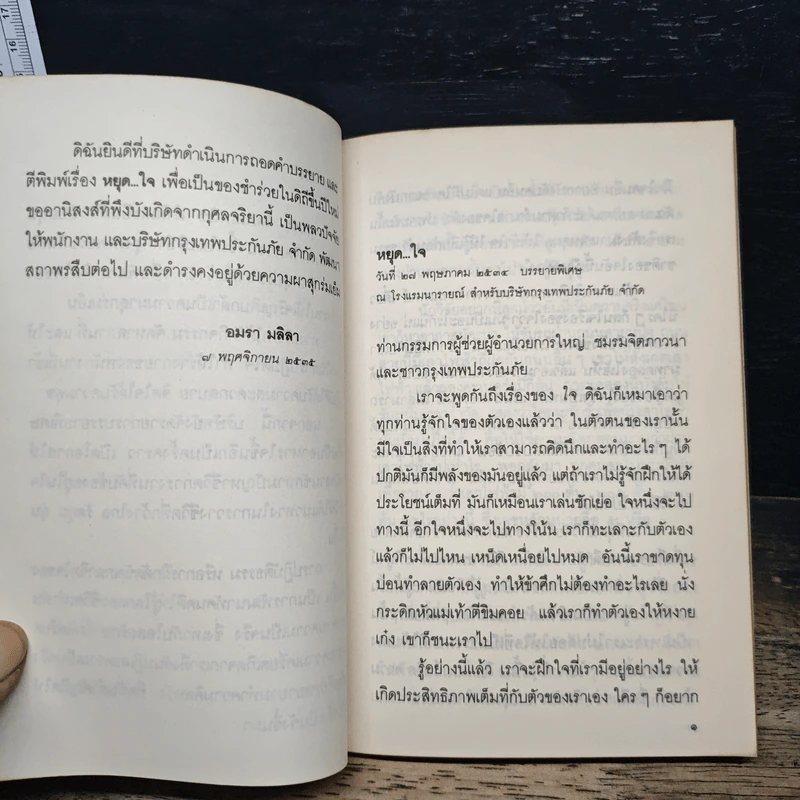 17
16
ดิฉันยินดีที่บริษัทดำเนินการถอดคำบรรยาย และ
ตีพิมพ์เรื่อง หยุด...ใจ เพื่อเป็นของชำร่วยในดิถีขึ้นปีใหม่
ขออานิสงส์ที่พึงบังเกิดจากกุศลจริยานี้ เป็นพลวปัจจัย
ให้พนักงาน และบริษัทกรุงเทพประกันภัย จำกัด พัฒนา
สถาพรสืบต่อไป และดำรงคงอยู่ด้วยความผาสุกร่มเย็น
อมรา มลิลา
๗ พฤศจิกายน ๒๕๓๕
หยุด...ใจ
วันที่ ๒๗ พฤษภาคม ๒๕๓๔ บรรยายพิเศษ
ณ โรงแรมนารายณ์ สำหรับบริษัทกรุงเทพประกันภัย จำกัด
ท่านกรรมการผู้ช่วยผู้อำนวยการใหญ่ ชมรมจิตภาวนา
และชาวกรุงเทพประกันภัย
เราจะพูดกันถึงเรื่องของ ใจ ดิฉันก็เหมาเอาว่า
ทุกท่านรู้จักใจของตัวเองแล้วว่า ในตัวตนของเรานั้น
มีใจเป็นสิ่งที่ทำให้เราสามารถคิดนึกและทำอะไร ๆ ได้
ปกติมันก็มีพลังของมันอยู่แล้ว แต่ถ้าเราไม่รู้จักฝึกให้ได้
ประโยชน์เต็มที่ มันก็เหมือนเราเล่นชักเย่อ ใจหนึ่งจะไป
ทางนี้ อีกใจหนึ่งจะไปทางโน้น เราก็ทะเลาะกับตัวเอง
แล้วก็ไม่ไปไหน เหน็ดเหนื่อยไปหมด อันนี้เราขาดทุน
บ่อนทำลายตัวเอง ทำให้ข้าศึกไม่ต้องทำอะไรเลย นั่ง
กระดิกหัวแม่เท้าตีขิมคอย แล้วเราก็ทำตัวเองให้หงาย
เก๋ง เขาก็ชนะเราไป
รู้อย่างนี้แล้ว เราจะฝึกใจที่เรามีอยู่อย่างไร ให้
เกิดประสิทธิภาพเต็มที่กับตัวของเราเอง ใคร ๆ ก็อยาก
๑